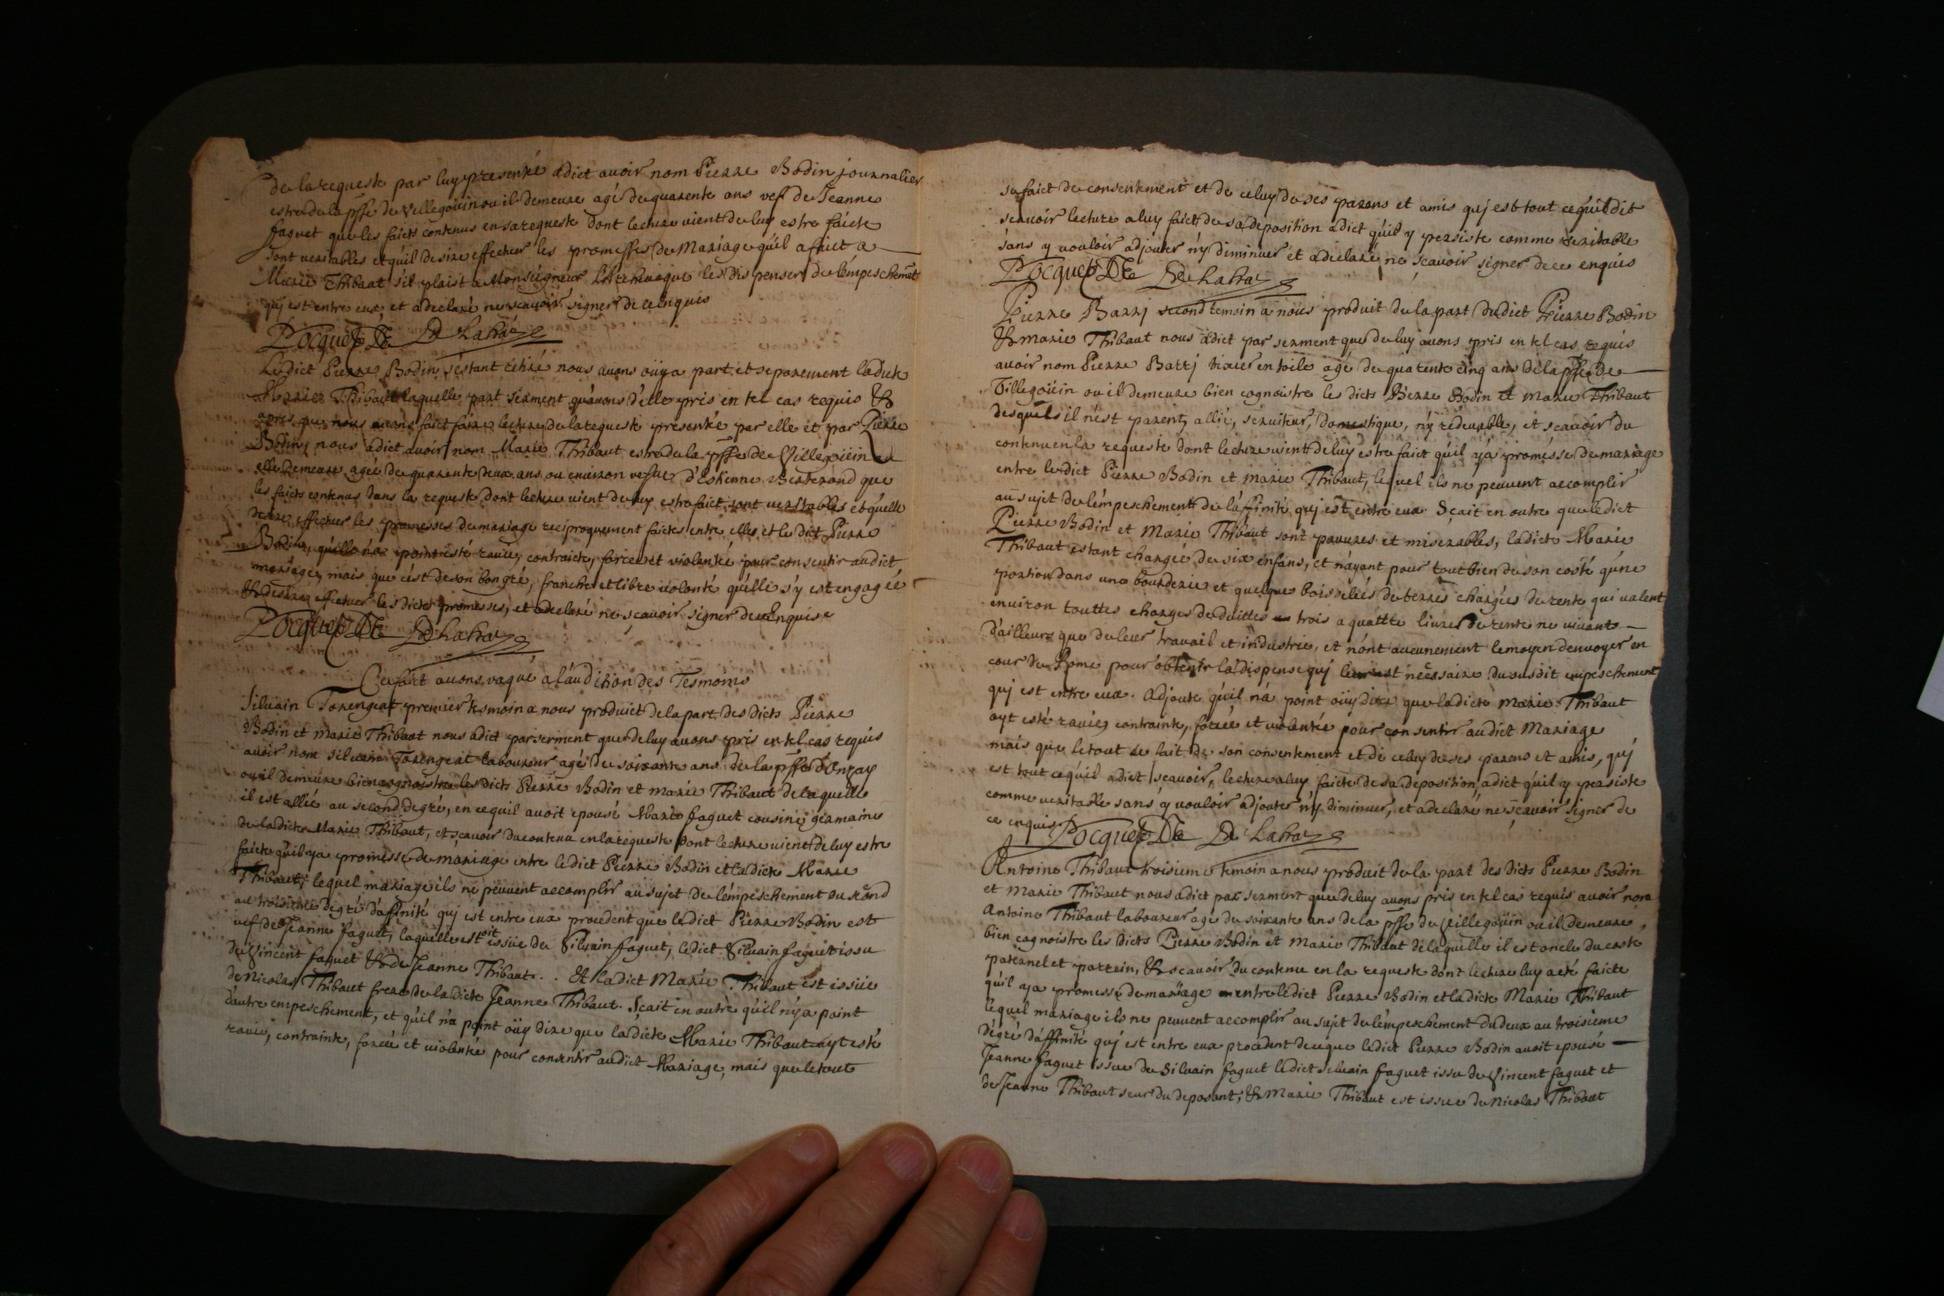 de la requeste par luy presentée a dict avoir nom Pierre Bodin journalier
estre de la psse de Villegoüin ou il demeure agé de quarente ans vef de Jeanne
faguet que les faicts contenus en sa requeste dont lecture vient de luy estre faicte
sont veritables et qu'il desire effectuer les promesses de Mariage qu'il a faict a
Marie Thibaut s'il plaist a Monseigneur l'Archevesque les dispenser de l'empeschemt
qui est entre eux et a declaré ne scavoir signer de ce enquis
Pocquet De De Labra
Le dict Pierre Bodin s'estant retiré nous avons oüy a part et separement la dicte
Marie Thibaut laquelle part serment qu'avons d'elle pris en tel cas requis &
apres que nous avons faict faire lecture de la requeste presentée par elle et par Pierre
Bodin, nous a dict avoir nom Marie Thibaut estre de la psse de Villegoüin
elle demeure, agée de quarente deux ans ou environ vefve d'Estienne Bertrand que
les faicts contenus dans la requeste dont lecture vient de luy estre faict sont veritables et qu'elle
desire effectuer les promesses de mariage reciproquement faictes entre elle et le dict Pierre
Bodin, qu'elle n'a point esté ravie, contraicte, forcée et violenté pour consentir au dict
mariage, mais que c'est de son bon gré, franche et libre volonté qu'elle s'y est engagée
& desire effectuer les dictes promesses, et a declaré ne scavoir signer de ce enquise
Pocquet De De Labra
Ce fait avons vaqué a l'audition des Tesmoins
Silvain Torengeat premier tesmoin a nous produict de la part des dicts Pierre
Bodin et Marie Thibaut nous a dict par serment que de luy avons pris en tel cas requis
avoir nom Silvain Torengeat laboureur agé de soixante ans de la psse d'Onzay
ou il demeure bien cognoistre les dicts Pierre Bodin et marie Thibaut de laquelle
il est allié au second degré, en ce qu'il avoit epousé Marie faguet cousine germaine
de la dicte Marie Thibaut, et scavoir du contenu en la requeste dont lecture vient de luy estre
faicte qu'il y a promesse de mariage entre le dict Pierre Bodin et la dicte Marie
Thibaut, lequel mariage ils ne peuvent accomplir au sujet de l'empeschement du second
au troisieme degré d'affinité qui est entre eux procedent que le dict Pierre Bodin est
vef de Jeanne faguet, laquelle estoit issüe de Silvain faguet, le dict Silvain faguet issu
de Vincent faguet & de Jeanne Thibaut . . Et la dict Marie Thibaut est issüe
de Nicolas Thibaut frere de la dicte Jeanne Thibaut. Sçait en outre qu'il n'y a point
d'autre empeschement, et qu'il n'a point oüy dire que la dicte Marie Thibaut ayt esté
ravie, contrainte, forcée et violentée pour consentir au dict Mariage, mais que le tout
se faict de consentement et de celuy de ses parens et amis qui est tout ce qu'il dit
scavoir lecture a luy faict de sa deposition a dict qu'il y persiste comme veritable
sans y vouloir adjouter n'y diminuer et a declaré ne scavoir signer de ce enquis
Pocquet De De Labra
Pierre Barrj second temoin a nous produit de la part du dict Pierre Bodin
& marie Thibaut nous a dict par serment que de luy avons pris en tel cas requis
avoir nom Pierre Barrj tixier en toile agé de quarente cinq ans de la psse de
Villegoüin ou il demeure bien cognoistre les dicts Pierre Bodin et marie Thibaut
desquels il n'est parent, allié, serviteur, domestique, n'y redevable, et scavoir du
contenu en la requeste dont lecture vient de luy estre faict qu'il y a promesse de mariage
entre le dict Pierre Bodin et marie Thibaut, lequel ils ne peuvent accomplir
au sujet de l'empeschement de l'affinité qui est entre eux Sçait en outre que le dict
Pierre Bodin et Marie Thibaut sont pauvres et miserables, la dicte Marie
Thibaut estant chargée de six enfans, et n'ayant pour tout bien de son costé qu'une
portion dans une bourderie et quelque boisselées de terres chargées de rente qui valent
environ touttes charges deduittes trois a quattre livres de rente ne vivants
d'ailleurs que de leur travail et industrie, et n'ont aucunement le moyen d'envoyer en
cour de Rome pour obtenir la dispense qui leur est nécessaire du susdit empeschement
qui est entre eux. Adjoute qu'il n'a point oüy dire que la dicte Marie Thibaut
ayt esté ravie, contrainte, forcée et violentée pour consentir au dict Mariage
mais que le tout se fait de son consentement et de celuy de ses parens et amis, qui
est tout ce qu'il a dict scavoir, lecture a luy faicte de sa deposition a dict qu'il y persiste
comme veritable sans y vouloir adjouter n'y diminuer, et a declaré ne scavoir signer de
ce enquis Pocquet De De Labra
Antoine Thibaut troisieme temoin a nous produit de la part des dicts Pierre Bodin
et Marie Thibaut nous a dict par serment que de luy avons pris en tel cas requis avoir nom
Antoine Thibaut laboureur agé de soixante ans de la psse de Villegoüin ou il demeure,
bien cognoistre les dicts Pierre Bodin et Marie Thibaut de laquelle il est oncle du costé
paternel et parrein, & scavoir du contenu en la requeste dont lecture luy a eté faicte
qu'il a ya promesse de mariage entre le dict Pierre Bodin et la dicte Marie Thibaut
lequel mariage ils ne peuvent accomplir au sujet de l'empeschement du deux au troisieme
degré d'affinité qui est entre eux procedent de ce que le dict Pierre Bodin avoit epousé
Jeanne faguet issue de Silvain faguet le dict silvain faguet issu de Vincent faguet et
de Jeanne Thibaut seur du deposant; & Marie Thibaut est issue de Nicolas Thibaut